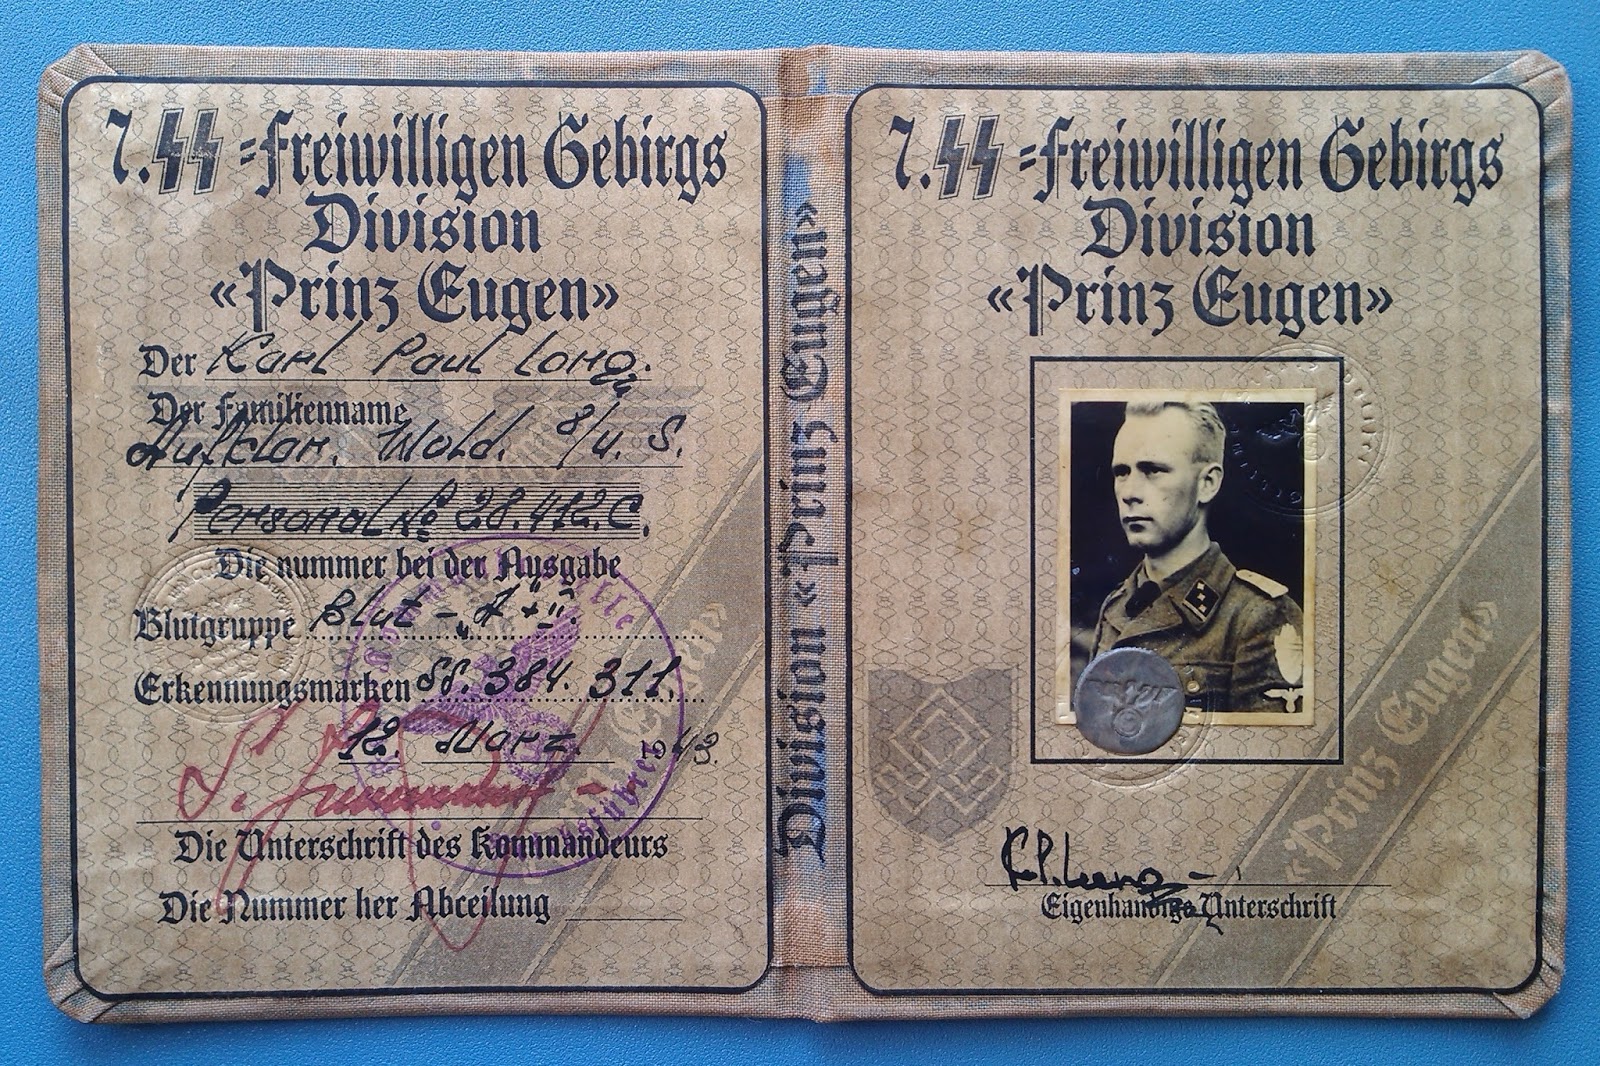 7. SS =Freiwilligen Gebirgs
Division
«Prinz Eugen»
Der Karl Paul Long.
Der Familienname
Aufklar. Wold. 8/u. S.
Personal № 28.412.C.
Die nummer bei der Ausgabe
Blutgruppe Blut - "A + II".
Erkennungsmarken SS. 384. 311.
12. März. 943.
Die Unterschrift des Kommandeurs
Die Nummer her Abceilung
Division «Prinz Eugen»
7. SS =Freiwilligen Gebirgs
Division
«Prinz Eugen»
K.P.Long
Eigenhandige Unterschrift
«Prinz Eugen»